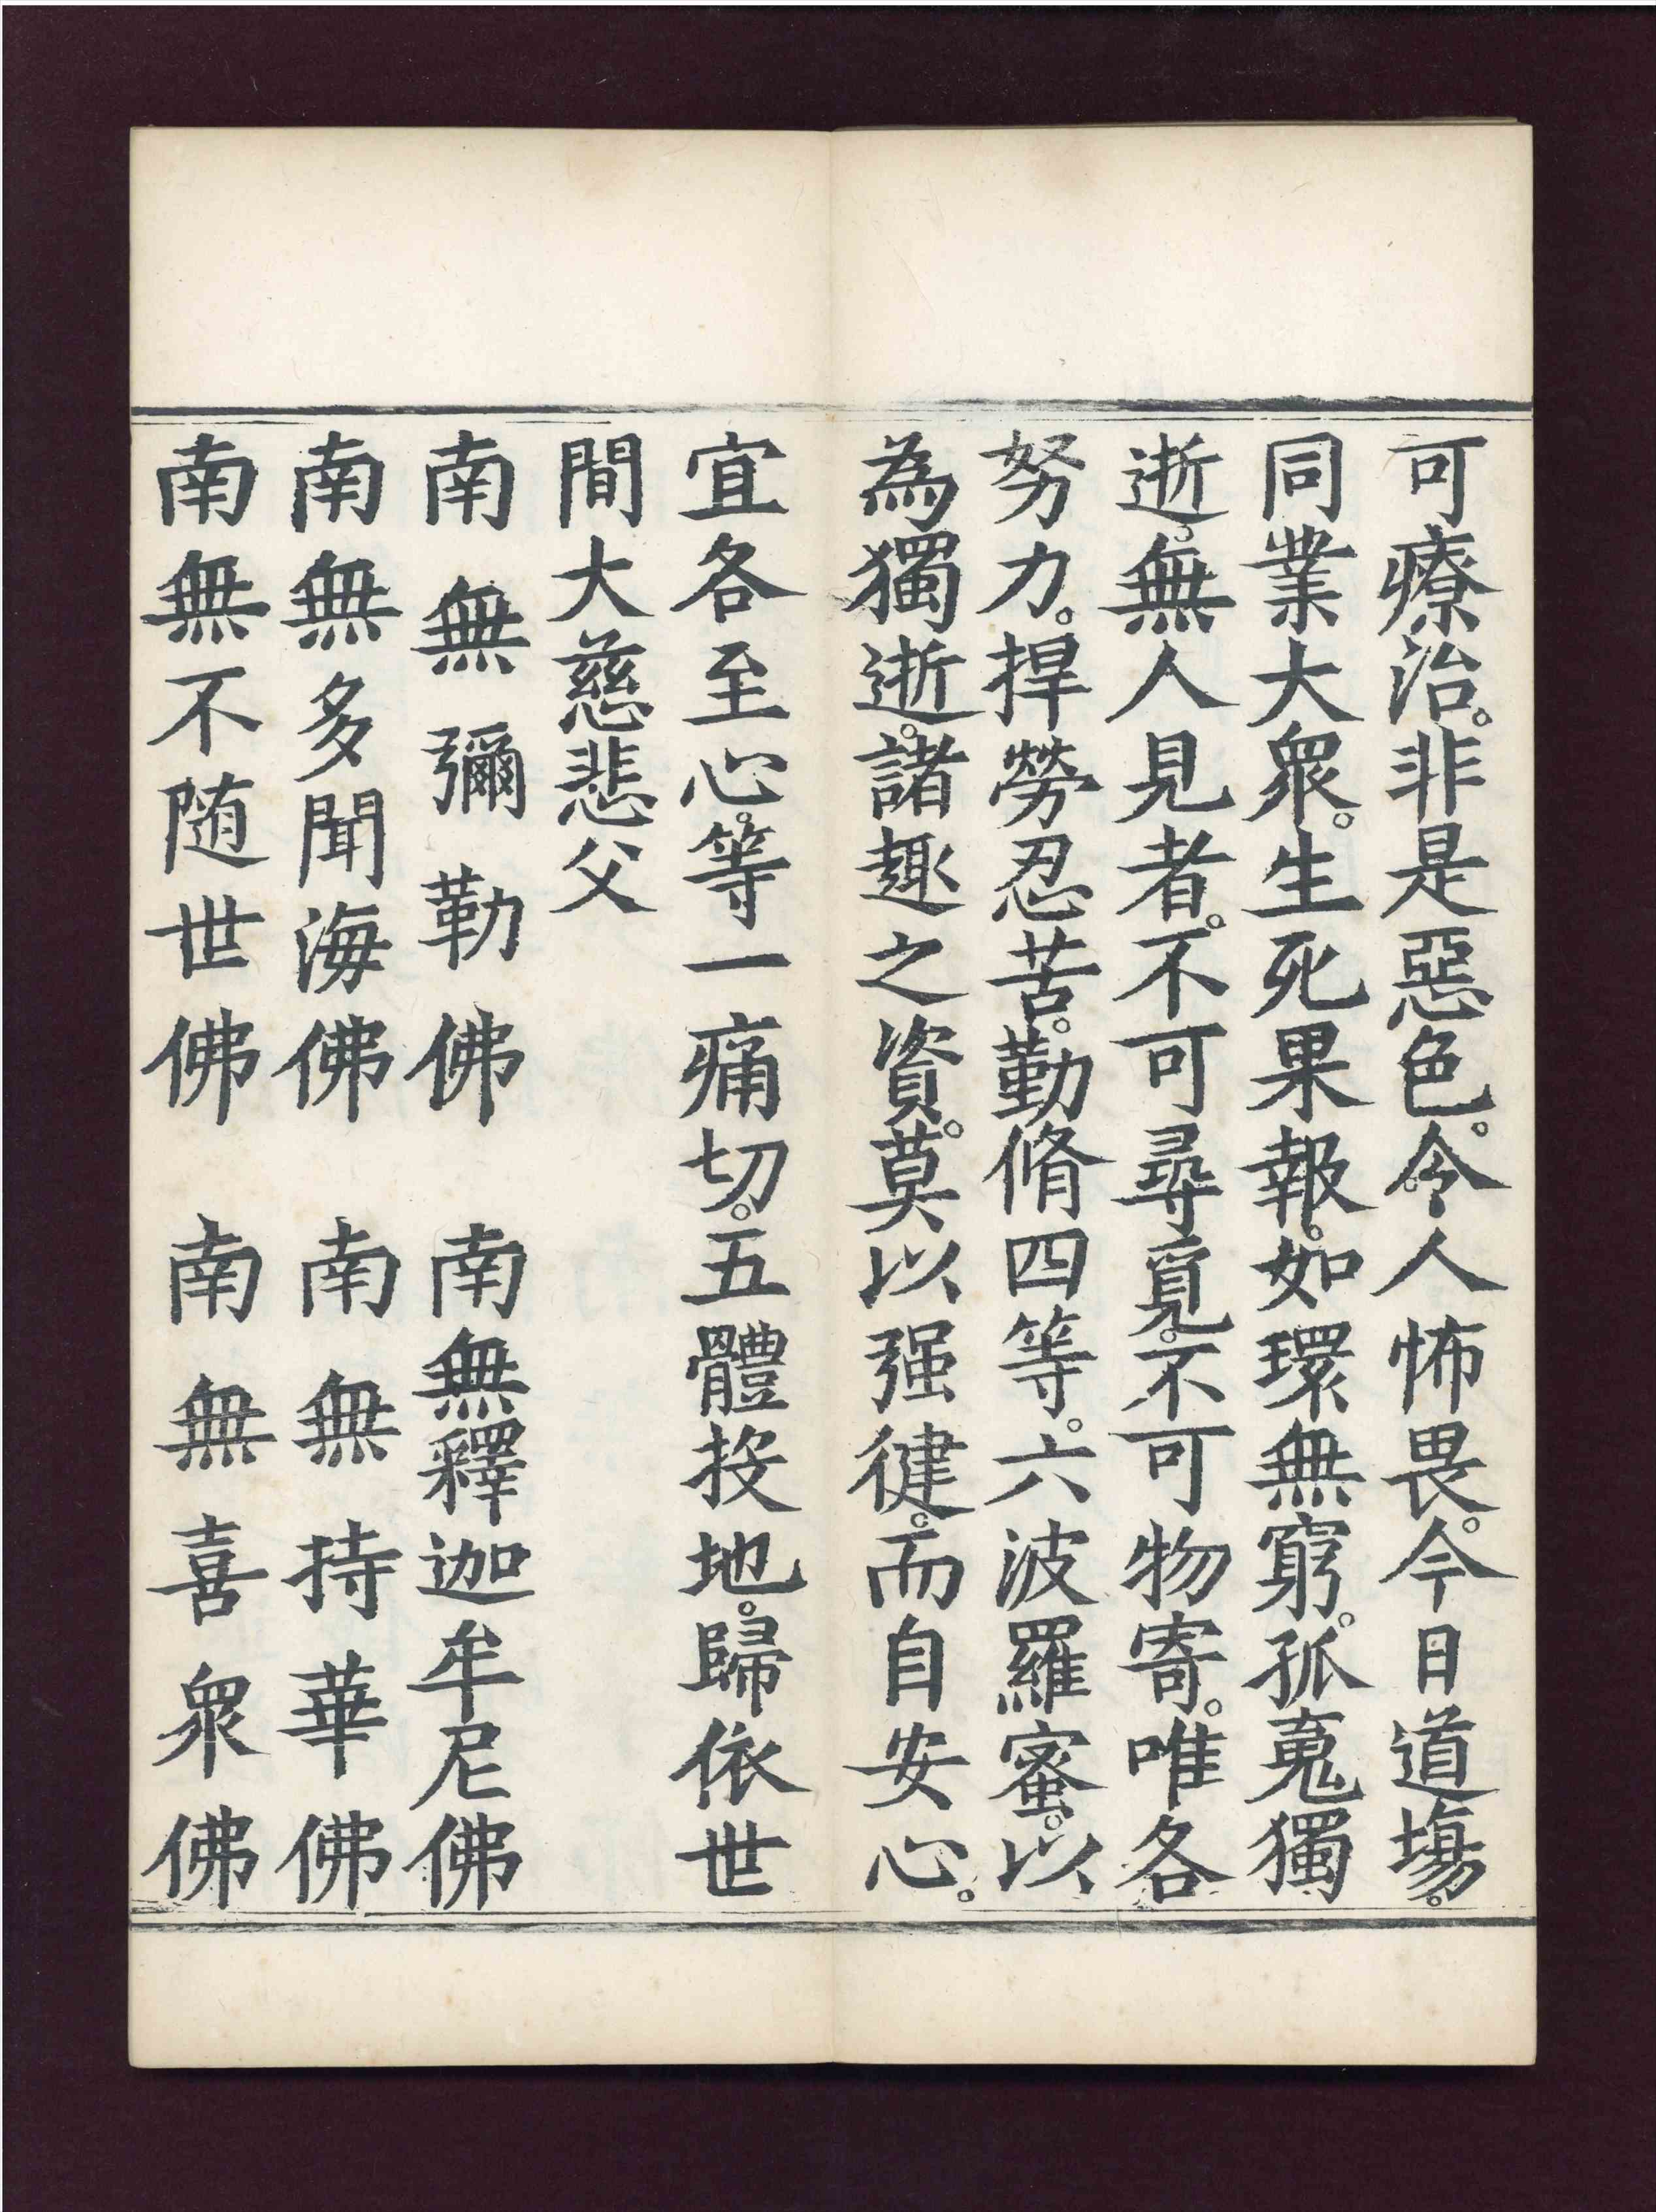 可療治。非是惡色。令人怖畏。今日道塲。
同業大衆。生死果報。如環無窮。孤䰟獨
逝。無人見者。不可尋覓。不可物寄。唯各
努力。捍勞忍苦。勤脩四等。六波羅蜜。以
為獨逝。諸趣之資。莫以强健。而自安心。
宜各至心。等一痛切。五體投地。歸依世
間大慈悲父
南無彌勒佛　南無釋迦牟尼佛
南無多聞海佛　南無持華佛
南無不随世佛　南無喜衆佛